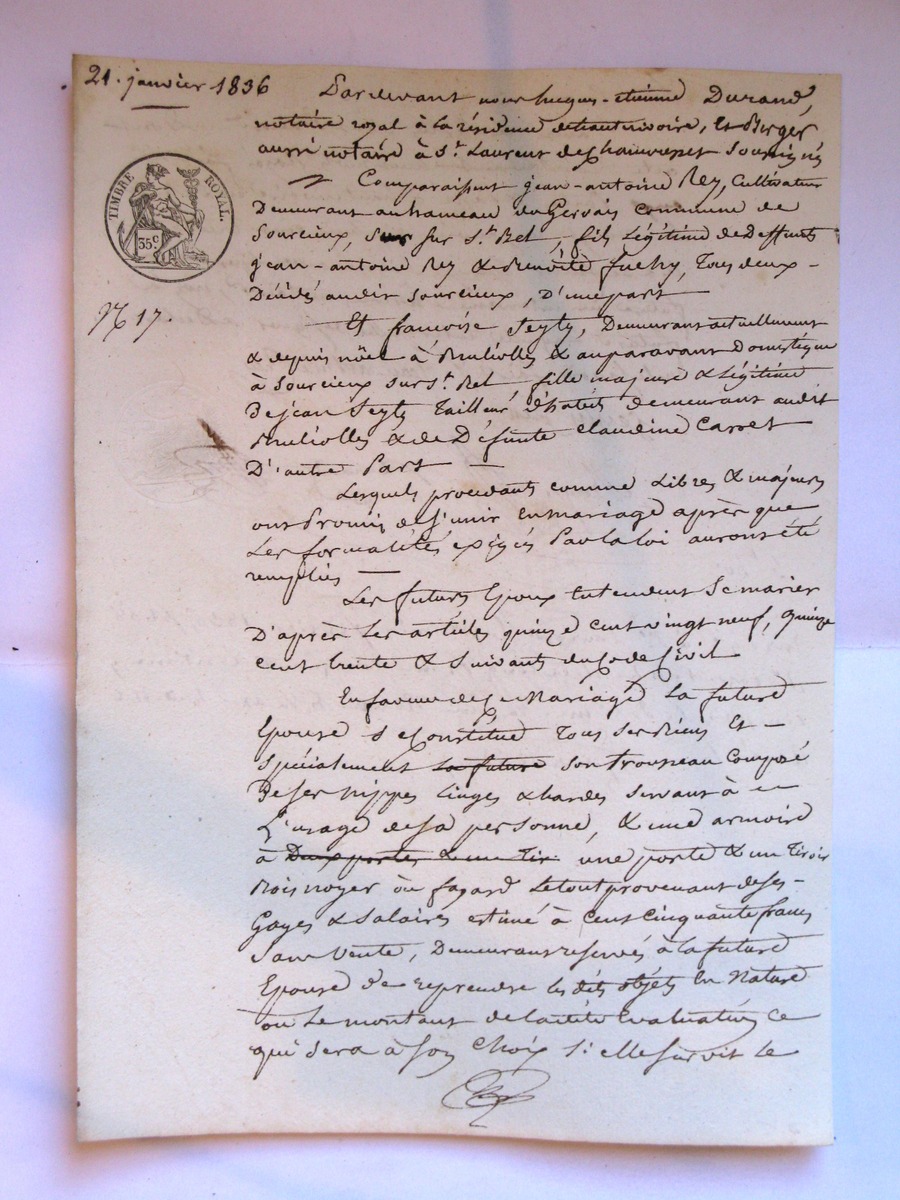 21. janvier 1836
Pardevant nous hugues-etienne Durand,
notaire royal à la résidence de hauterivoire, Et Berger
aussi notaire à St. Laurent de Chamousset Soussignés
TIMBRE ROYAL.
35c.
Comparaissent jean-antoine Rey, Cultivateur
Demeurant au hameau du Gervais commune de
Sourcieux, sur sur St. Bel, fils Légitime de Deffunts
jean-antoine Rey & Benoite, Tous deux
Décédés audit Sourcieux, D'une part
N. 17.
Et francoise Seyty, Demeurant actuellement
& depuis nöel à Bruliolles & auparavant Domestique
à Sourcieux sur St. Bel fille majeure & Légitime
De jean Seyty Tailleur d'habits demeurant audit
Brulliolles & de Défunte Claudine Carret
D'autre Part
Lesquels procédants comme Libres & majeurs
ont Promis de s'unir En mariage après que
Les formalités exigées Par la loi auront été
remplies
Les futurs Epoux entendent Se marier
D'après Les articles quinze cent vingt neuf, quinze
cent trente & suivants du Code Civil
En faveur de Ce Mariage La future
Epouse se Constitue Tous ses Biens Et
Spécialement la future son Trousseau Composé
De ses nippes Linges & hardes servant à
L'usage de sa personne, & une armoire
à Deux portes & un Tir. une porte & un Tiroir
Bois noyer Le tout provenant de ses
Gages & Salaires estimé à Cent Cinquante francs
Sans Vente, Demeurant reservés à la future
Epouse de reprendre les dits objets En Nature
ou Le montant de la dite Evaluation Ce
qui sera à son Choix Si elle survit le